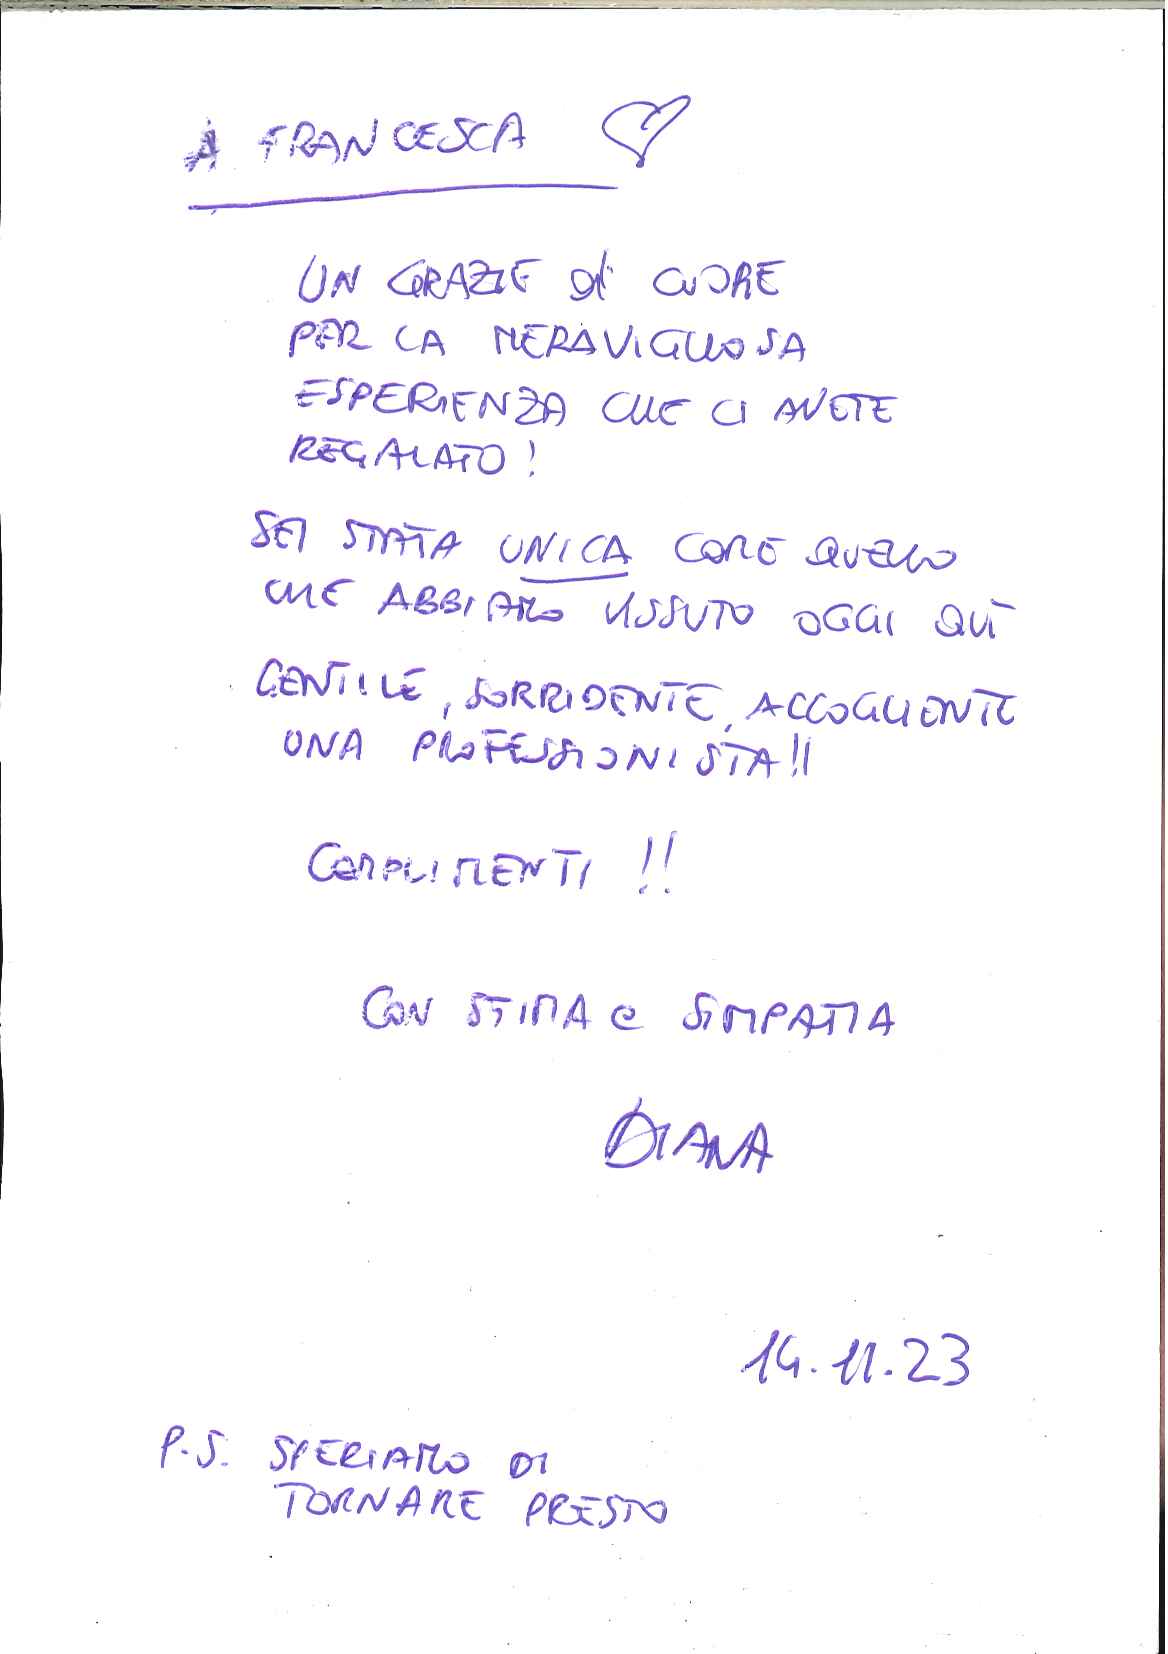 A FRANCESCA
UN GRAZIE di CUORE
PER LA MERAVIGLIOSA
ESPERIENZA CHE CI AVETE
REGALATO!
SEI STATA UNICA COME QUELLO
CHE ABBIAMO VISSUTO OGGI QUÌ
GENTILE, SORRIDENTE, ACCOGLIENTE
UNA PROFESSIONISTA!!
COMPLIMENTI !!
CON STIMA e SIMPATIA
DIANA
14.11.23
P.S. SPERIAMO DI
TORNARE PRESTO